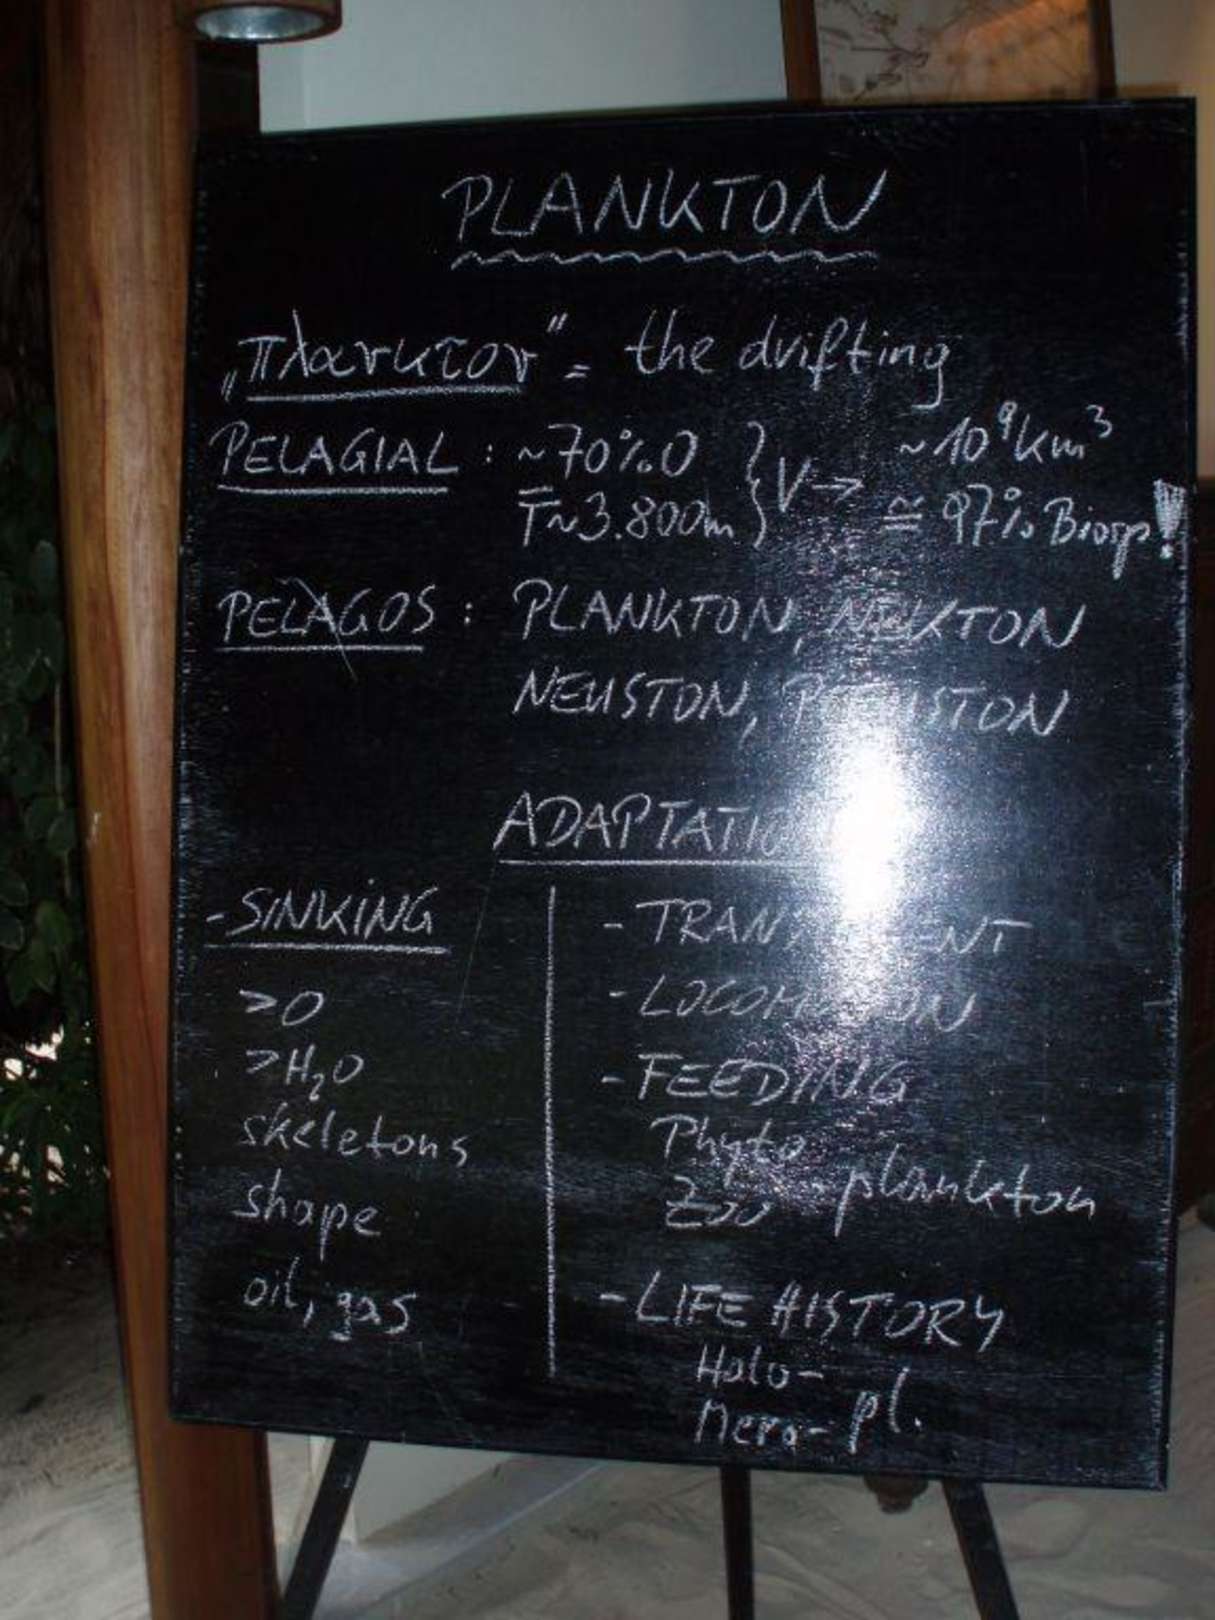 PLANKTON
„πλανκτον" = the drifting
PELAGIAL : ~70% O } V → ~10⁹ km³
T̅~3.800m ≅ 97% Biosp!
PELAGOS : PLANKTON, NEKTON
NEUSTON,
- SINKING
>O
>H₂O
skeletons
shape
oil, gas
- LOCOMOTION
- FEEDING
Phyto
Zoo - plankton
- LIFE HISTORY
Holo-
Mero- pl.